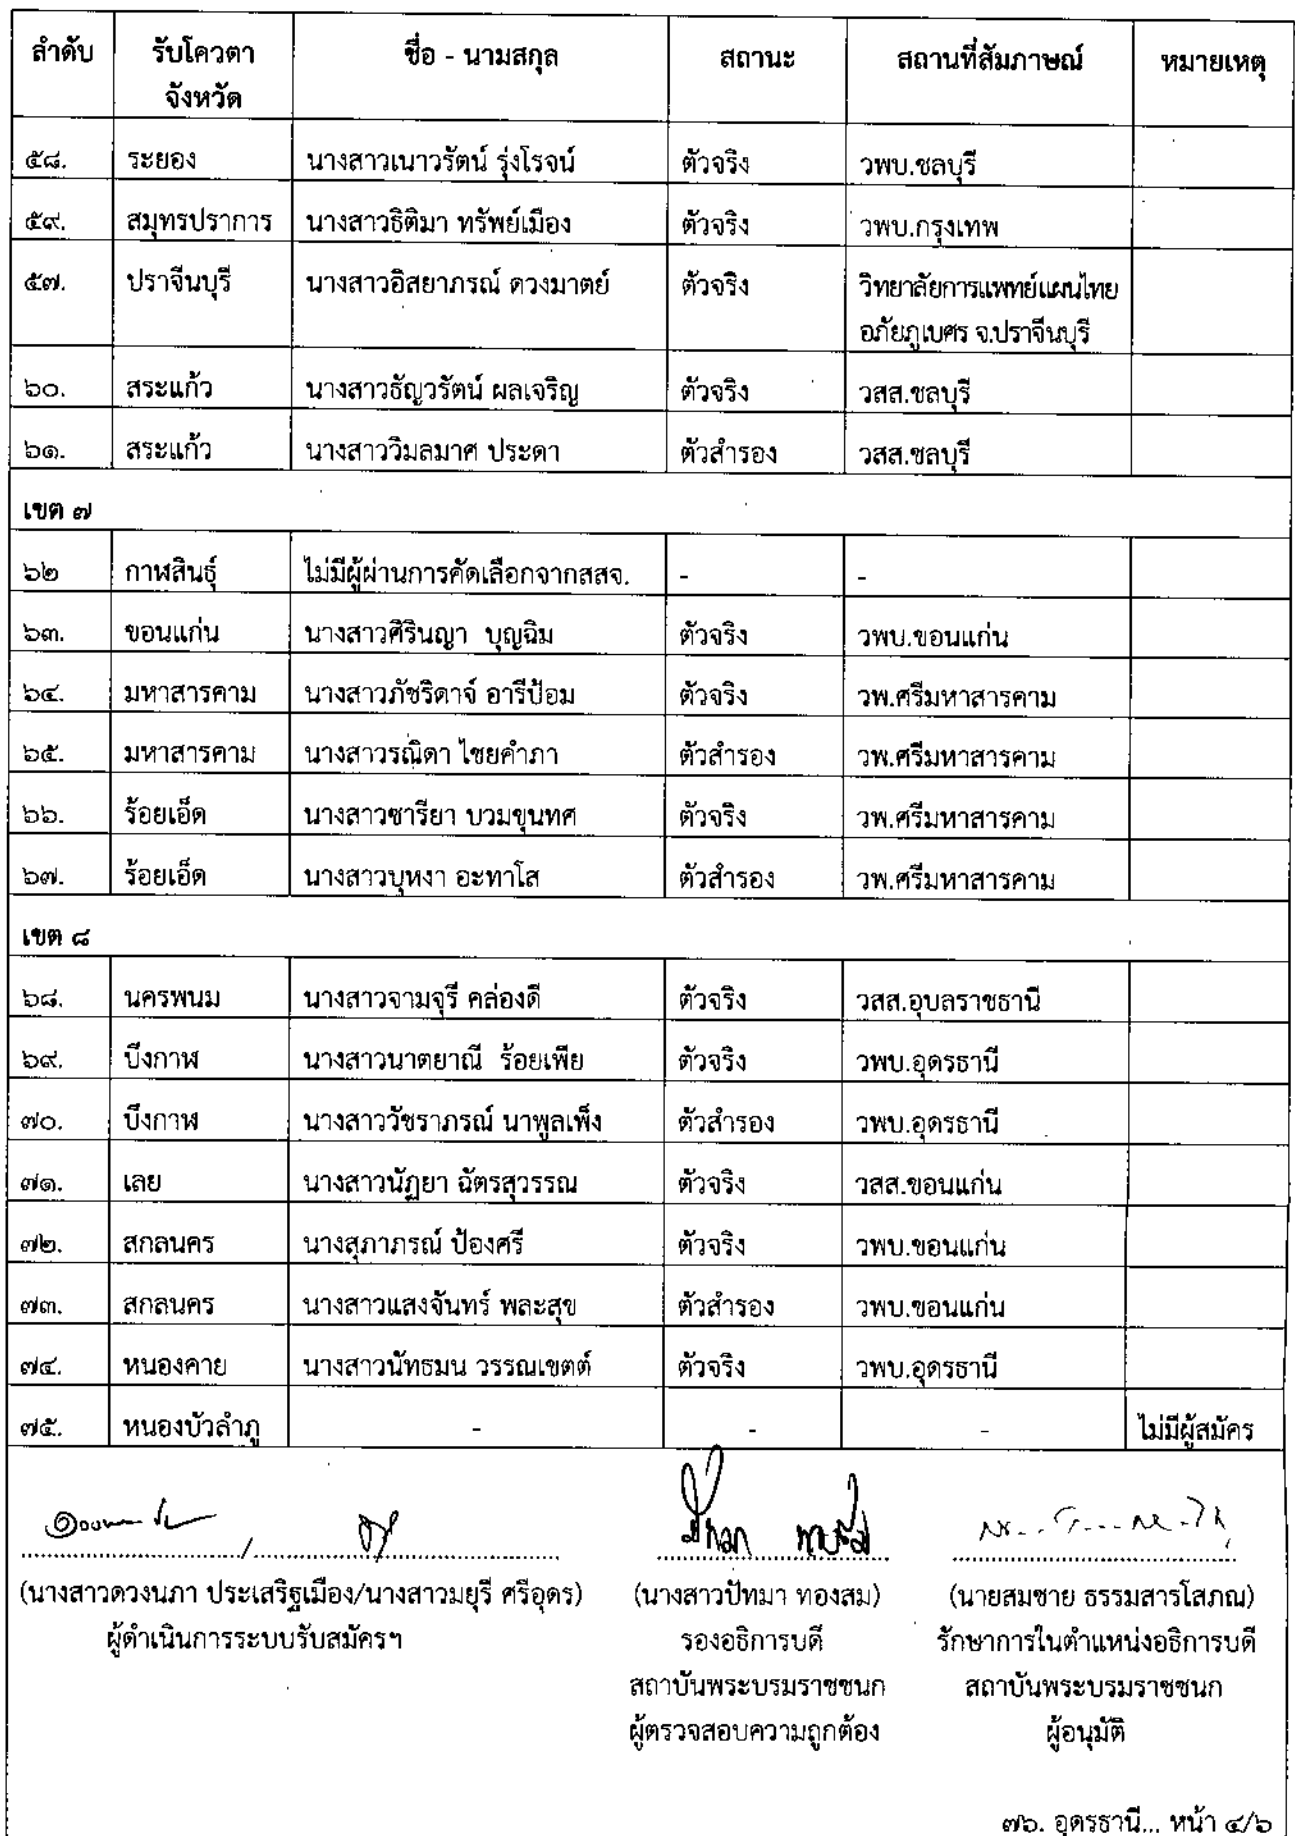 ลำดับ รับโควตา ชื่อ - นามสกุล สถานะ สถานที่สัมภาษณ์ หมายเหตุ
จังหวัด
๕๘. ระยอง นางสาวเนาวรัตน์ รุ่งโรจน์ ตัวจริง วพบ.ชลบุรี
๕๙. สมุทรปราการ นางสาวธิติมา ทรัพย์เมือง ตัวจริง วพบ.กรุงเทพ
๕๗. ปราจีนบุรี นางสาวอิสยาภรณ์ ดวงมาตย์ ตัวจริง วิทยาลัยการแพทย์แผนไทย
อภัยภูเบศร จ.ปราจีนบุรี
๖๐. สระแก้ว นางสาวธัญวรัตน์ ผลเจริญ ตัวจริง วสส.ชลบุรี
๖๑. สระแก้ว นางสาววิมลมาศ ประดา ตัวสำรอง วสส.ชลบุรี
เขต ๗
๖๒ กาฬสินธุ์ ไม่มีผู้ผ่านการคัดเลือกจากสสจ. - -
๖๓. ขอนแก่น นางสาวศิรินญา บุญฉิม ตัวจริง วพบ.ขอนแก่น
๖๔. มหาสารคาม นางสาวภัชริดาจ์ อารีป้อม ตัวจริง วพ.ศรีมหาสารคาม
๖๕. มหาสารคาม นางสาวรณิดา ไชยคำภา ตัวสำรอง วพ.ศรีมหาสารคาม
๖๖. ร้อยเอ็ด นางสาวซารียา บวมขุนทศ ตัวจริง วพ.ศรีมหาสารคาม
๖๗. ร้อยเอ็ด นางสาวบุหงา อะทาโส ตัวสำรอง วพ.ศรีมหาสารคาม
เขต ๘
๖๘. นครพนม นางสาวจามจุรี คล่องดี ตัวจริง วสส.อุบลราชธานี
๖๙. บึงกาฬ นางสาวนาตยาณี ร้อยเพีย ตัวจริง วพบ.อุดรธานี
๗๐. บึงกาฬ นางสาววัชราภรณ์ นาพูลเพ็ง ตัวสำรอง วพบ.อุดรธานี
๗๑. เลย นางสาวนัฏยา ฉัตรสุวรรณ ตัวจริง วสส.ขอนแก่น
๗๒. สกลนคร นางสุภาภรณ์ ป้องศรี ตัวจริง วพบ.ขอนแก่น
๗๓. สกลนคร นางสาวแสงจันทร์ พละสุข ตัวสำรอง วพบ.ขอนแก่น
๗๔. หนองคาย นางสาวนัทธมน วรรณเขตต์ ตัวจริง วพบ.อุดรธานี
๗๕. หนองบัวลำภู - - - ไม่มีผู้สมัคร
(นางสาวดวงนภา ประเสริฐเมือง/นางสาวมยุรี ศรีอุดร) (นางสาวปัทมา ทองสม) (นายสมชาย ธรรมสารโสภณ)
ผู้ดำเนินการระบบรับสมัครฯ รองอธิการบดี รักษาการในตำแหน่งอธิการบดี
สถาบันพระบรมราชชนก สถาบันพระบรมราชชนก
ผู้ตรวจสอบความถูกต้อง ผู้อนุมัติ
๗๖. อุดรธานี... หน้า ๔/๖